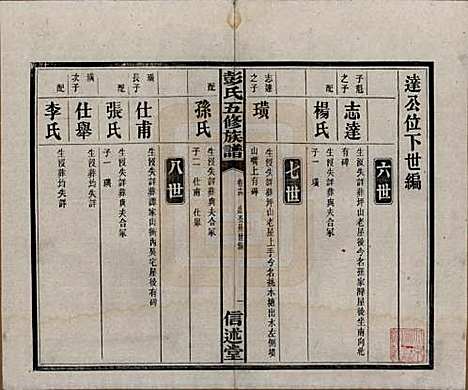 達公位下世編
六世
子魁
志達
生歿失詳葬坪山老屋後今名孫家灣屋後坐南向北
有碑
配
楊氏
生歿失詳葬與夫合冢
子一 璜
七世
志達之子
璜
生歿失詳葬坪山老屋上手今名桃木塘出水左側塘
山嘴上有碑
配
孫氏
生歿失詳葬與夫合冢
子二 仕甫 仕舉
彭氏五修族譜
一
信述堂
八世
璜長子
仕甫
配
張氏
生歿失詳葬與夫合冢
璜次子
仕舉
生歿葬均失詳
配
李氏
生歿葬均失詳